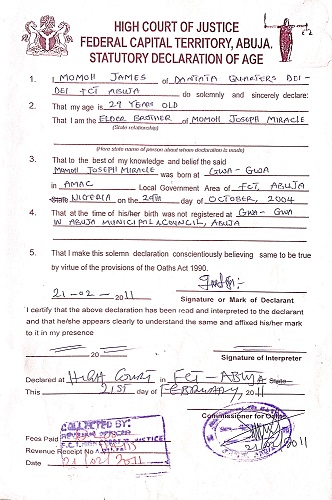 HIGH COURT OF JUSTICE
FEDERAL CAPITAL TERRITORY, ABUJA.
STATUTORY DECLARATION OF AGE
1. I MOMOH JAMES of DANTATA QUARTERS DEI-
DEI FCT ABUJA do solemnly and sincerely declare:
2. That my age is 29 YEARS OLD
That I am the ELDER BROTHER of MOMOH JOSEPH MIRACLE
(State relationship)
(Here state name of person about whom declaration is made)
3. That to the best of my knowledge and belief the said
MOMOH JOSEPH MIRACLE was born at GWA-GWA
in AMAC Local Government Area of FCT, ABUJA
State NIGERIA on the 29th day of OCTOBER, 2004
4. That at the time of his/her birth was not registered at GWA-GWA
IN ABUJA MUNICIPAL COUNCIL, ABUJA
5. That I make this solemn declaration conscientiously believing same to be true
by virtue of the provisions of the Oaths Act 1990.
21-02-2011
Signature or Mark of Declarant
I certify that the above declaration has been read and interpreted to the declarant
and that he/she appears clearly to understand the same and affixed his/her mark
to it in my presence
20
Signature of Interpreter
Declared at HIGH COURT in FCT-ABUJA State
This 21ST day of FEBRUARY, 2011
Commissioner for Oaths
COLLECTED BY:
REVENUE OFFICER
Fees Paid
Revenue Receipt No
Date 21/02/2011
21/02/2011